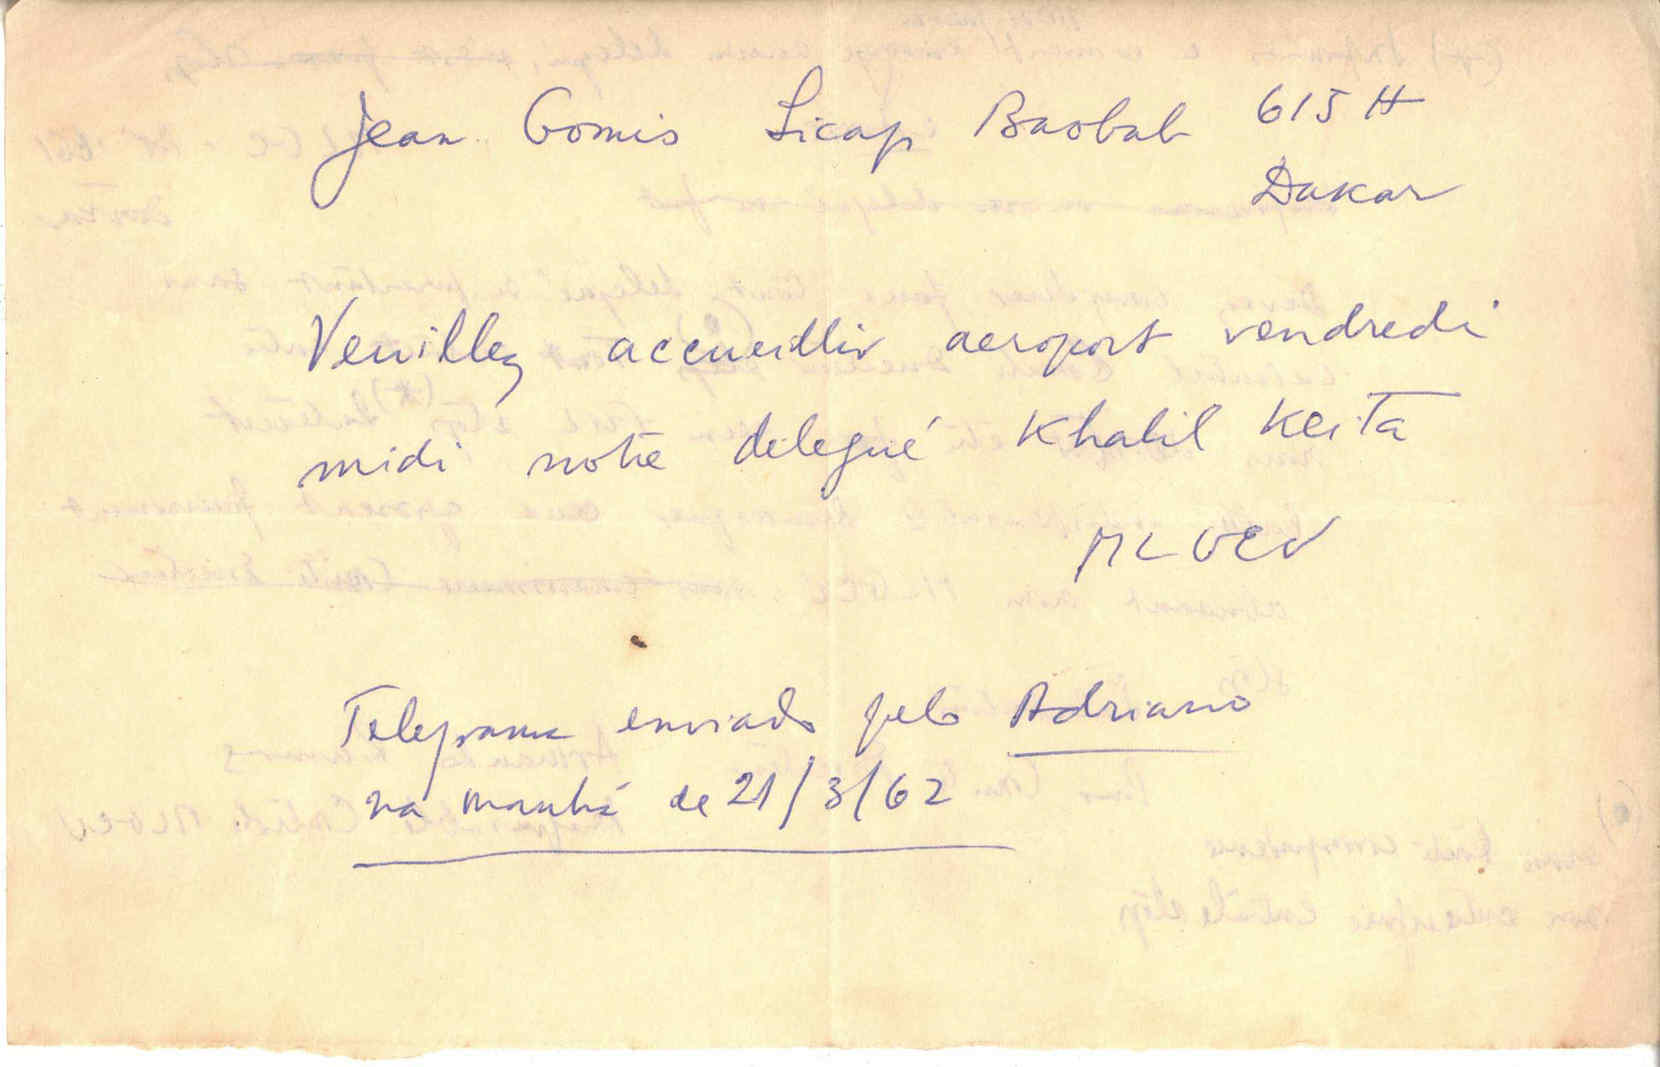 Jean Gomis Sicap Baobab 615 H
Dakar
Veuillez accueillir aeroport vendredi
midi notre delegué Khalil Keita
MLGCV
Telegrama enviado pelo Adriano
na manhã de 21/3/62